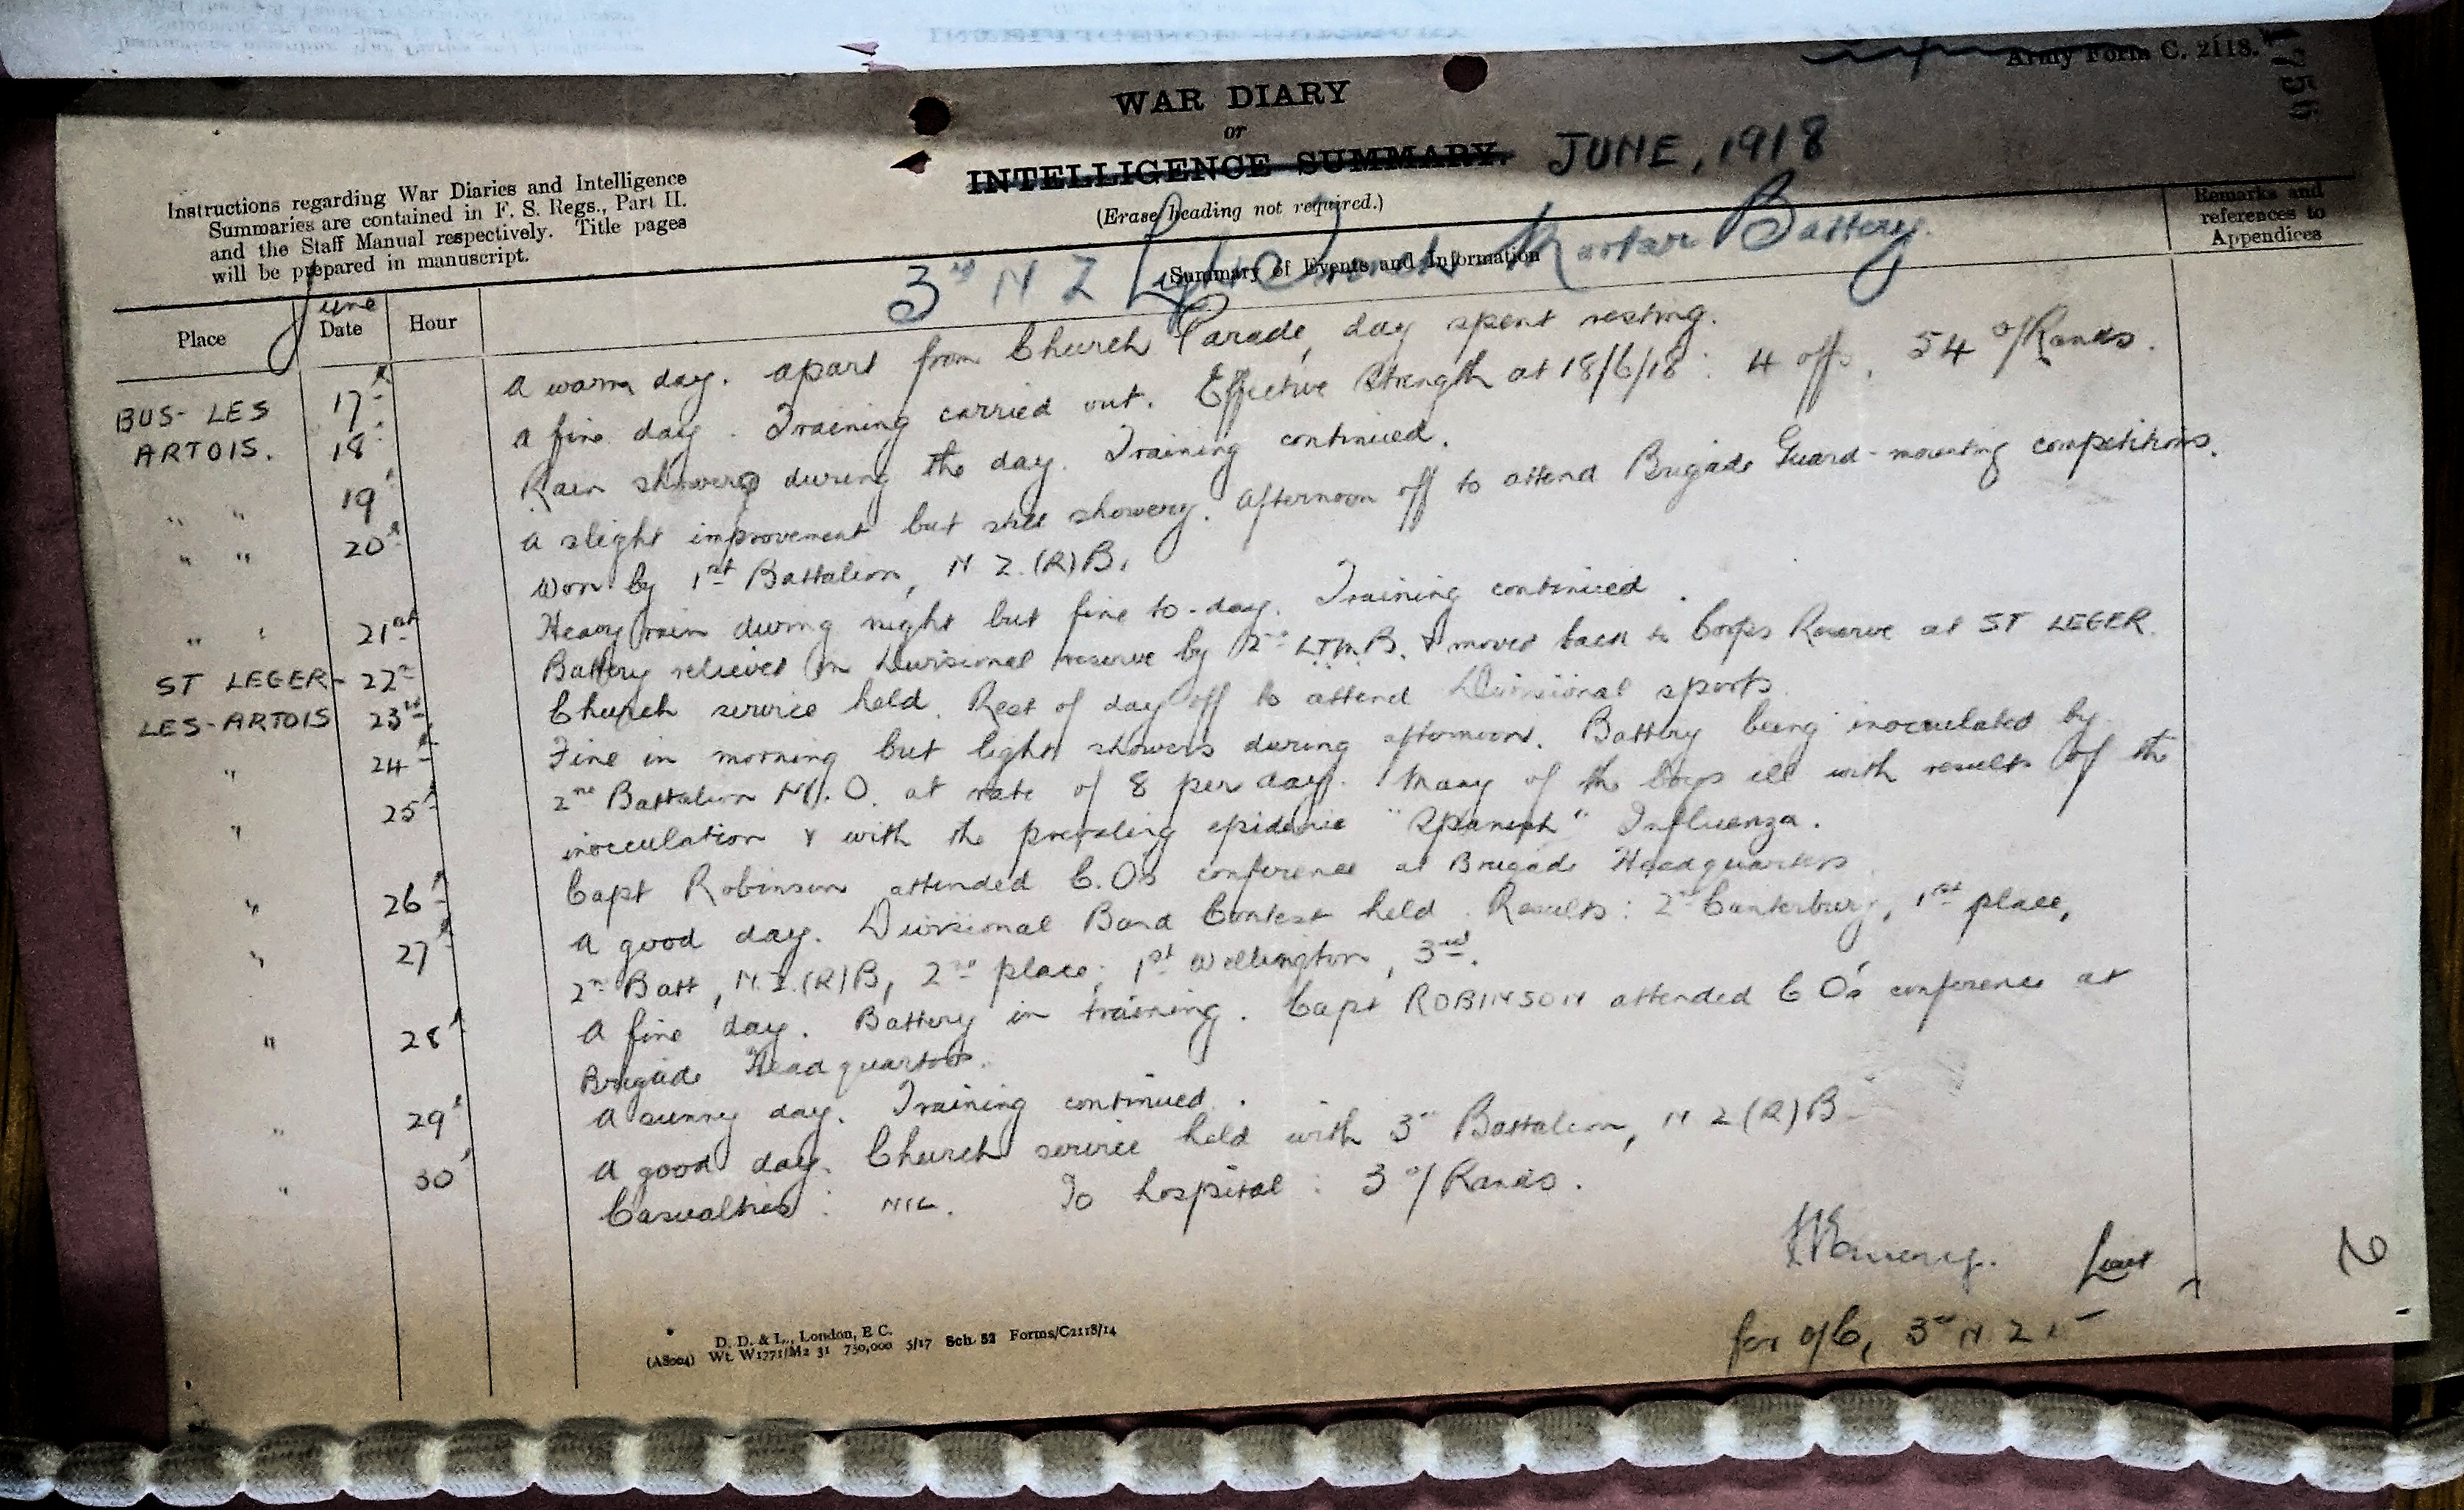 Army Form C. 2118.
WAR DIARY
or
INTELLIGENCE SUMMARY. JUNE, 1918
(Erase heading not required.)
Instructions regarding War Diaries and Intelligence
Summaries are contained in F. S. Regs., Part II.
and the Staff Manual respectively. Title pages
will be prepared in manuscript.
3rd N Z Light Trench Mortar Battery.
Summary of Events and Information
Remarks and
references to
Appendices
Place June Date Hour
BUS-LES 17th A warm day. Apart from Church Parade, day spent resting.
ARTOIS. 18th A fine day. Training carried out. Effective Strength at 18/6/18: 4 offs. 54 o/Ranks.
" " 19th Rain showers during the day. Training continued.
" " 20th A slight improvement but still showery. Afternoon off to attend Brigade Guard-mounting competitions.
Won by 1st Battalion, N Z.(R)B.
" " 21st Heavy rain during night but fine to-day. Training continued.
ST LEGER- 22nd Battery relieved in Divisional reserve by 2nd L.T.M.B. & moved back to Corps Reserve at ST LEGER.
LES-ARTOIS 23rd Church service held. Rest of day off to attend Divisional sports.
" 24th Fine in morning but light showers during afternoon. Battery being inocculated by
" 25th 2nd Battalion M.O. at rate of 8 per day. Many of the boys ill with results of the
inocculation & with the prevailing epidemic "Spanish" Influenza.
" 26th Capt Robinson attended C.Os conference at Brigade Headquarters
" 27th A good day. Divisional Band Contest held. Results: 2nd Canterbury, 1st place,
2nd Batt, N.Z.(R)B, 2nd place; 1st Wellington, 3rd.
" 28th A fine day. Battery in training. Capt ROBINSON attended C O's conference at
Brigade Headquarters.
" 29th A sunny day. Training continued.
" 30th A good day. Church service held with 3rd Battalion, N Z (R) B
Casualties: NIL. To hospital: 3 o/Ranks.
Lieut
for o/C, 3rd N. Z
2
D. D. & L., London, E.C.
(A8004) Wt. W1771/M2 31 750,000 5/17 Sch. 52 Forms/C2118/14